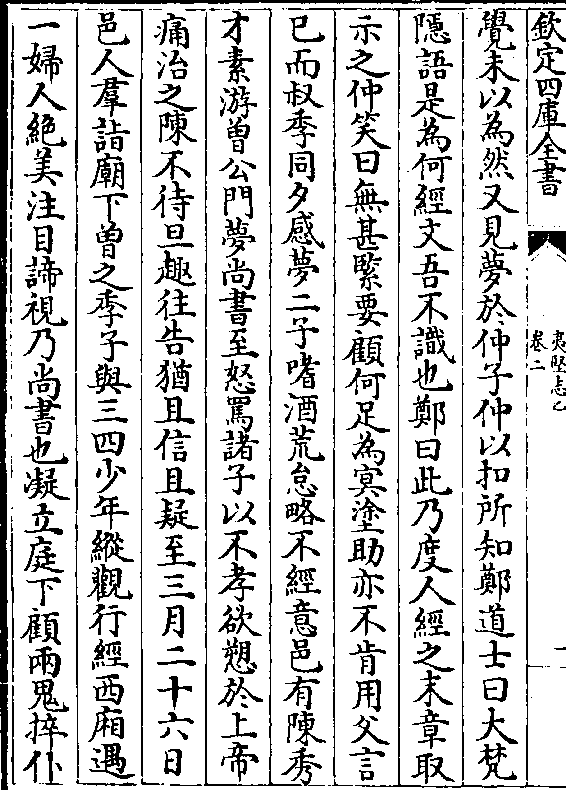 欽定四庫全書
夷堅志乙
卷二
一
覺未以為然又見夢於仲子仲以扣所知鄭道士曰大梵
隱語是為何經文吾不識也鄭曰此乃度人經之末章取
示之仲笑曰無甚緊要顧何足為冥塗助亦不肯用父言
已而叔季同夕感夢二子嗜酒荒怠略不經意邑有陳秀
才素游曾公門夢尚書至怒罵諸子以不孝欲愬於上帝
痛治之陳不待旦趣往告猶且信且疑至三月二十六日
邑人羣詣廟下曾之季子與三四少年縱觀行經西廂遇
一婦人絕美注目諦視乃尚書也凝立庭下顧兩鬼捽仆